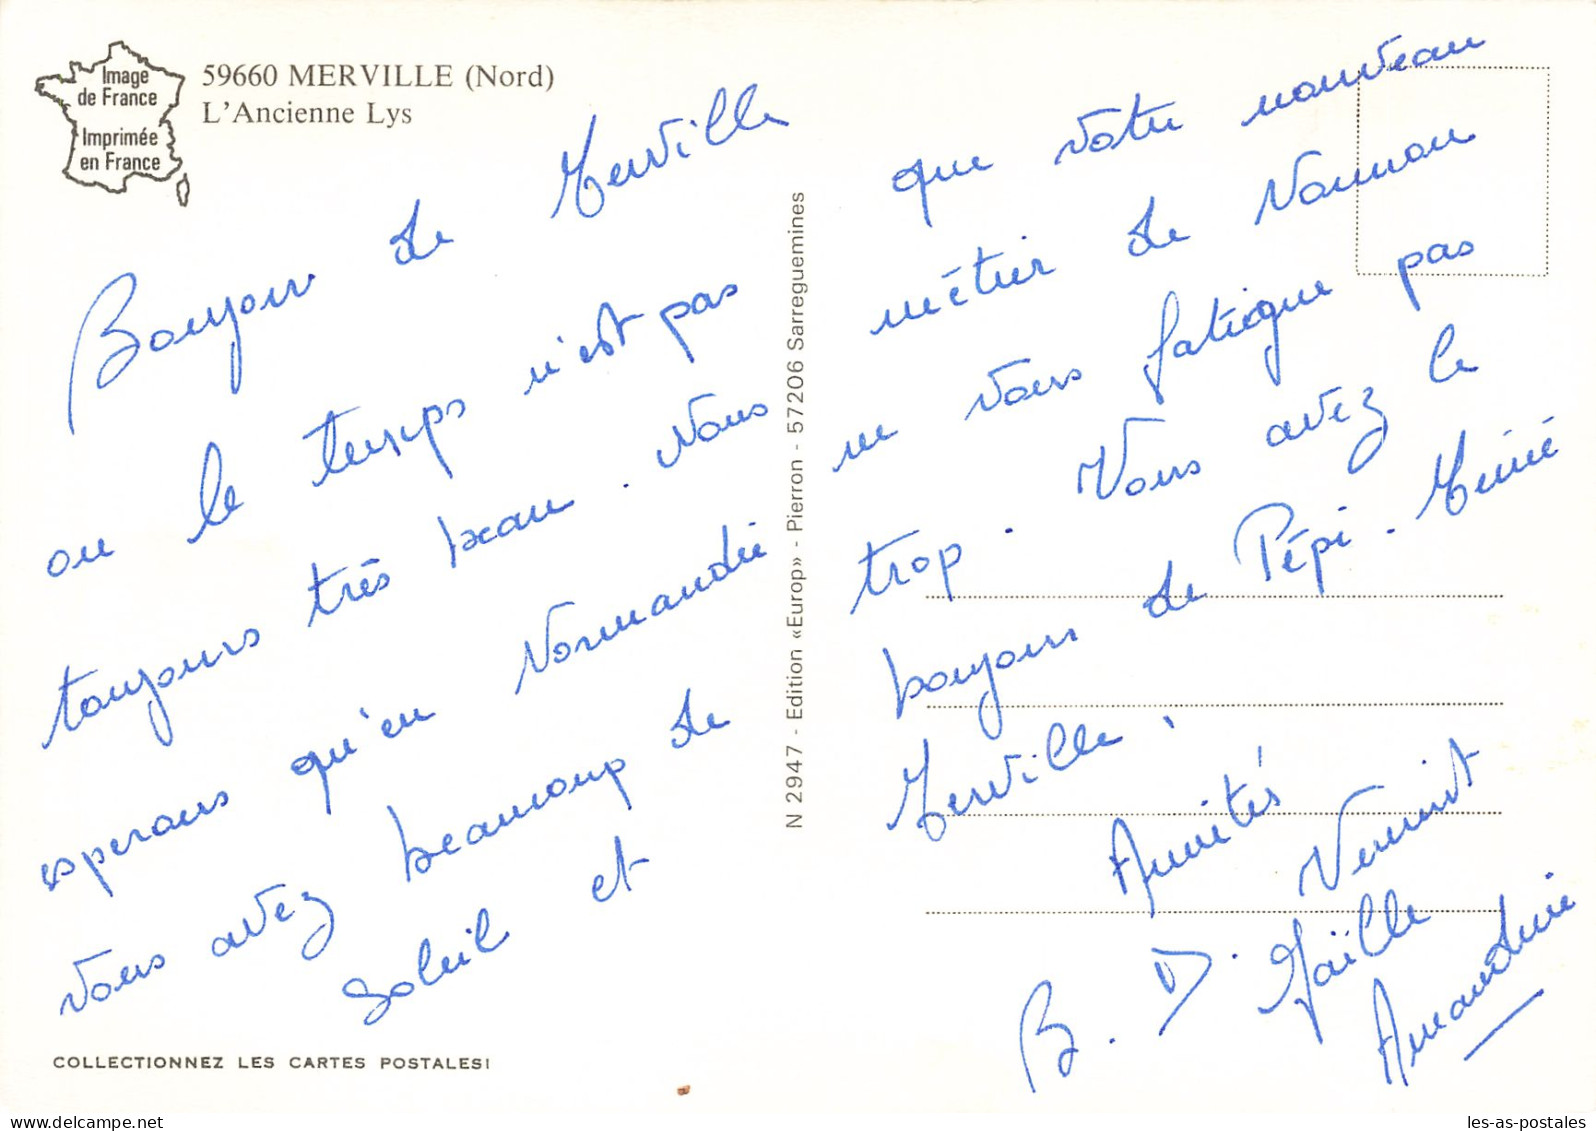 Image
de France
Imprimée
en France
59660 MERVILLE (Nord)
L'Ancienne Lys
Bonjour de Merville
ou le temps n'est pas
toujours très beau. Nous
esperons qu'en Normandie
vous avez beaucoup de
soleil et
COLLECTIONNEZ LES CARTES POSTALES!
N 2947 - Edition «Europ» - Pierron - 57206 Sarreguemines
que votre nouveau
métier de Nounou
ne vous fatigue pas
trop. Vous avez le
bonjour de Pépi. Mémé
Merville.
Amitiés
B. D. Vermist
Gaëlle
Amandine
les-as-postales